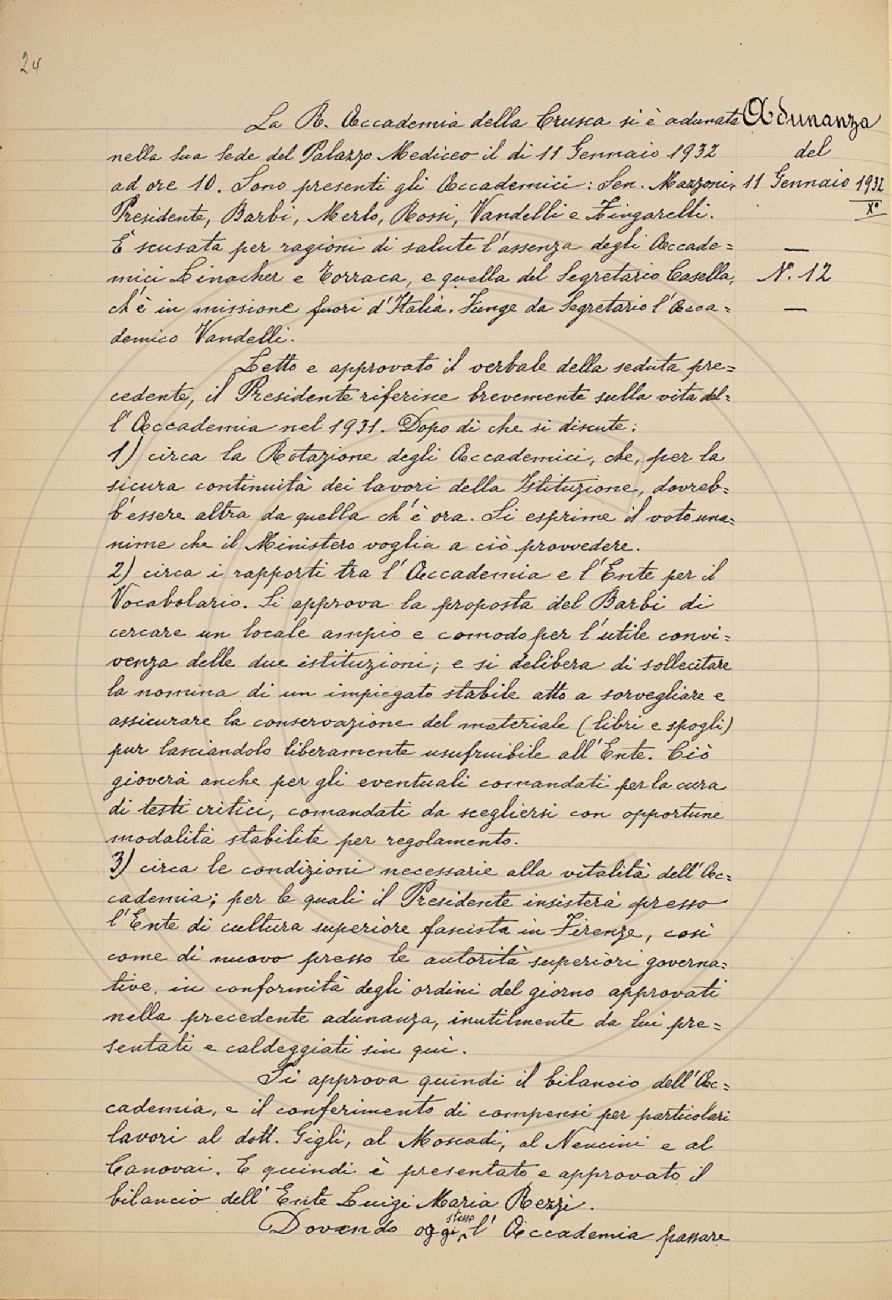 24
La R. Accademia della Crusca si è adunata
nella sua sede del Palazzo Mediceo il dì 11 Gennaio 1932
ad ore 10. Sono presenti gli Accademici: Sen. Mazzoni,
Presidente, Barbi, Merlo, Rossi, Vandelli e Zingarelli.
È scusata per ragioni di salute l'assenza degli Accade=
mici Linacher e Torraca, e quella del Segretario Casella,
ch'è in missione fuori d'Italia. Funge da Segretario l'Acca=
demico Vandelli.
Adunanza
del
11 Gennaio 1932
Xº
N.º 12
Letto e approvato il verbale della seduta pre=
cedente, il Presidente riferisce brevemente sulla vita del=
l'Accademia nel 1931. Dopo di che si discute:
1) circa la Rotazione degli Accademici, che, per la
sicura continuità dei lavori della Istituzione, dovreb=
b'essere altra da quella ch'è ora. Si esprime il voto una=
nime che il Ministero voglia a ciò provvedere.
2) circa i rapporti tra l'Accademia e l'Ente per il
Vocabolario. Si approva la proposta del Barbi di
cercare un locale ampio e comodo per l'utile convi=
venza delle due istituzioni; e si delibera di sollecitare
la nomina di un impiegato stabile atto a sorvegliare e
assicurare la conservazione del materiale (libri e spogli)
pur lasciandolo liberamente usufruibile all'Ente. Ciò
gioverà anche per gli eventuali comandati per la cura
di testi critici, comandati da scegliersi con opportune
modalità stabilite per regolamento.
3) circa le condizioni necessarie alla vitalità dell'Ac=
cademia; per le quali il Presidente insisterà presso
l'Ente di cultura superiore fascista in Firenze, così
come di nuovo presso le autorità superiori governa=
tive, in conformità degli ordini del giorno approvati
nella precedente adunanza, inutilmente da lui pre=
sentati e caldeggiati sin qui.
Si approva quindi il bilancio dell'Ac=
cademia, e il conferimento di compensi per particolari
lavori al dott. Gigli, al Moscadi, al Nencini e al
Canovai. E quindi è presentato e approvato il
bilancio dell'Ente Luigi Maria Rezzi.
Dovendo oggi stesso l'Accademia passare